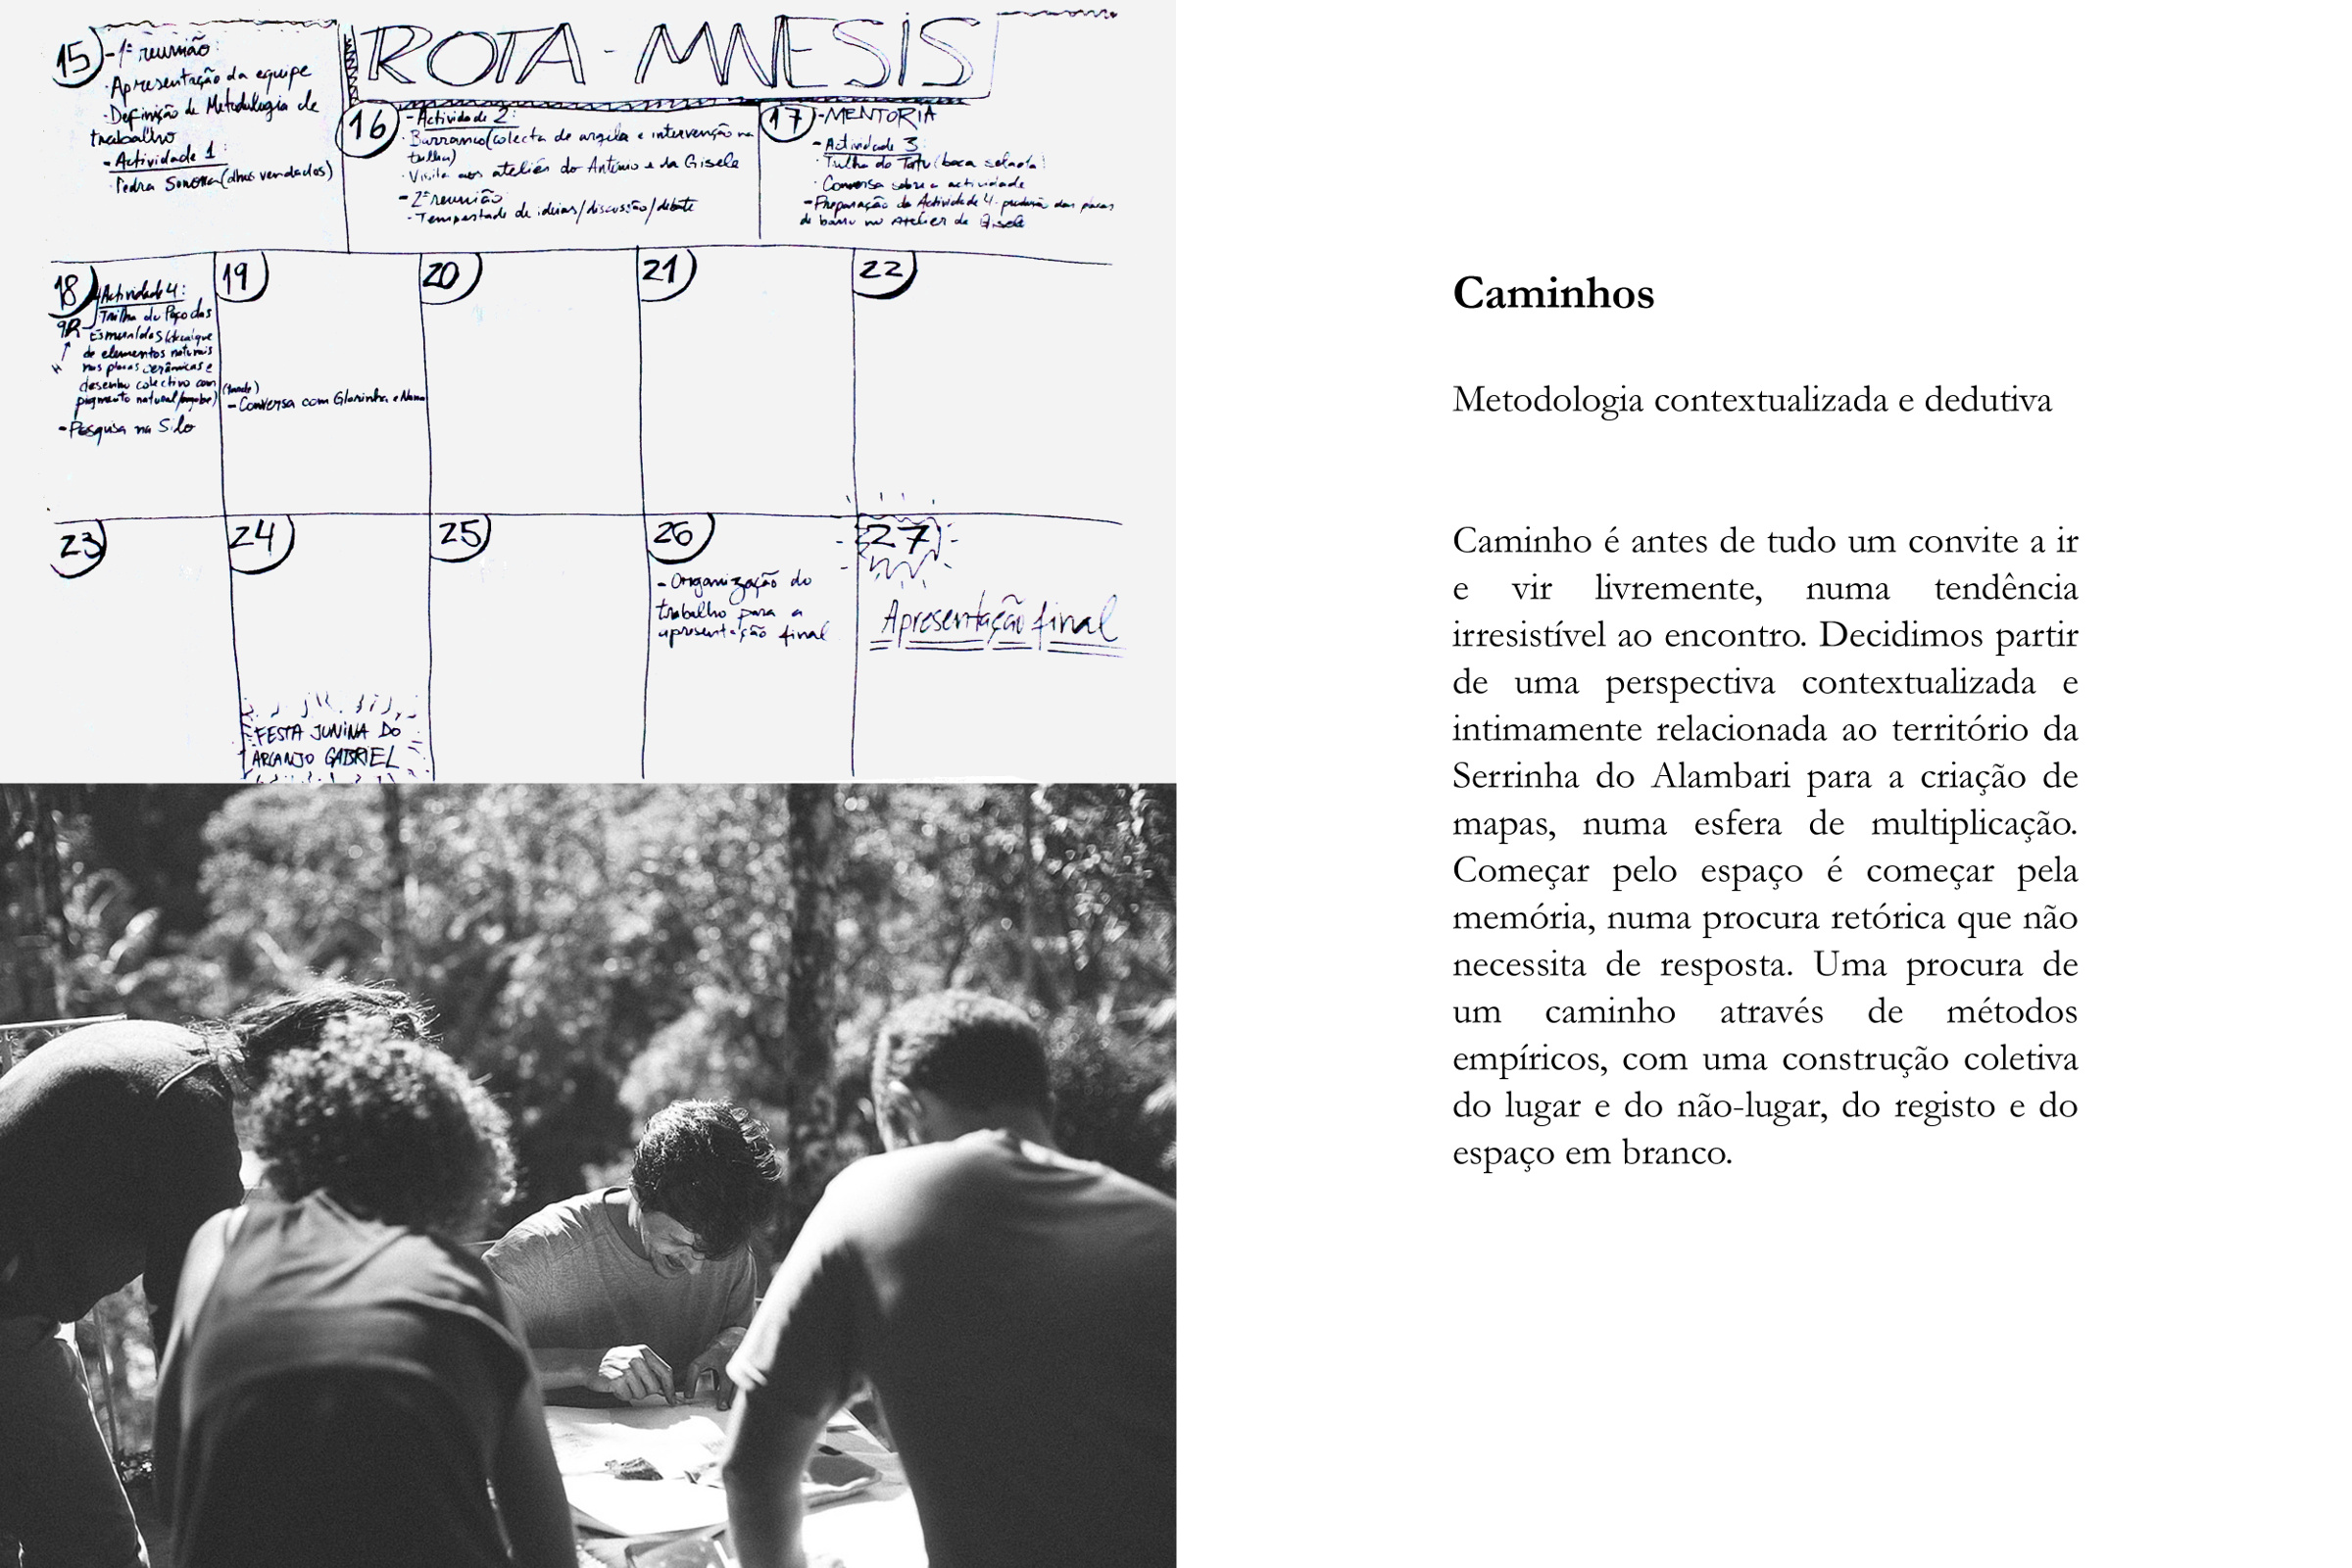 ROTA - MNESIS
15 - 1ª reunião
· Apresentação da equipe
· Definição de Metodologia de
trabalho
- Actividade 1:
Pedra Sonora (olhos vendados)
16 - Actividade 2:
· Barranco (colecta de argila e intervenção na
trilha)
· Visita aos ateliês do António e da Gisele
- 2ª reunião
- Tempestade de ideias/discussão/debate
17 - MENTORIA
- Actividade 3
· Trilha do Tatu (boca selada)
· Conversa sobre a actividade
- Preparação da Actividade 4 - produção das placas
de barro no Atelier da Gisele
18 Actividade 4:
9h Trilha do Poço das
Esmeraldas (decalque
de elementos naturais
nas placas cerâmicas e
desenho colectivo com
pigmento natural/engobe)
- Pesquisa na Silo
19
(tarde)
- Conversa com Glorinha e
20
21
22
23
24
FESTA JUNINA DO
ARCANJO GABRIEL
25
26
- Organização do
trabalho para a
apresentação final
27
Apresentação final
Caminhos
Metodologia contextualizada e dedutiva
Caminho é antes de tudo um convite a ir
e vir livremente, numa tendência
irresistível ao encontro. Decidimos partir
de uma perspectiva contextualizada e
intimamente relacionada ao território da
Serrinha do Alambari para a criação de
mapas, numa esfera de multiplicação.
Começar pelo espaço é começar pela
memória, numa procura retórica que não
necessita de resposta. Uma procura de
um caminho através de métodos
empíricos, com uma construção coletiva
do lugar e do não-lugar, do registo e do
espaço em branco.